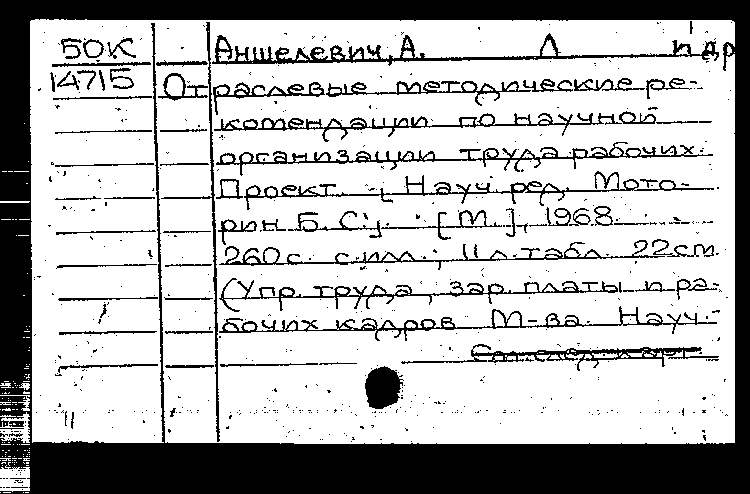 50К Аншелевич, А. Л и др
14715 Отраслевые методические ре-
комендации по научной
организации труда рабочих.
Проект. [Науч. ред. Мото-
рин Б. С.]. [М.], 1968.
260с. с илл.; 11 л. табл. 22см
(Упр. труда, зар. платы и ра-
бочих кадров М-ва. Науч.-
См. след. карт.